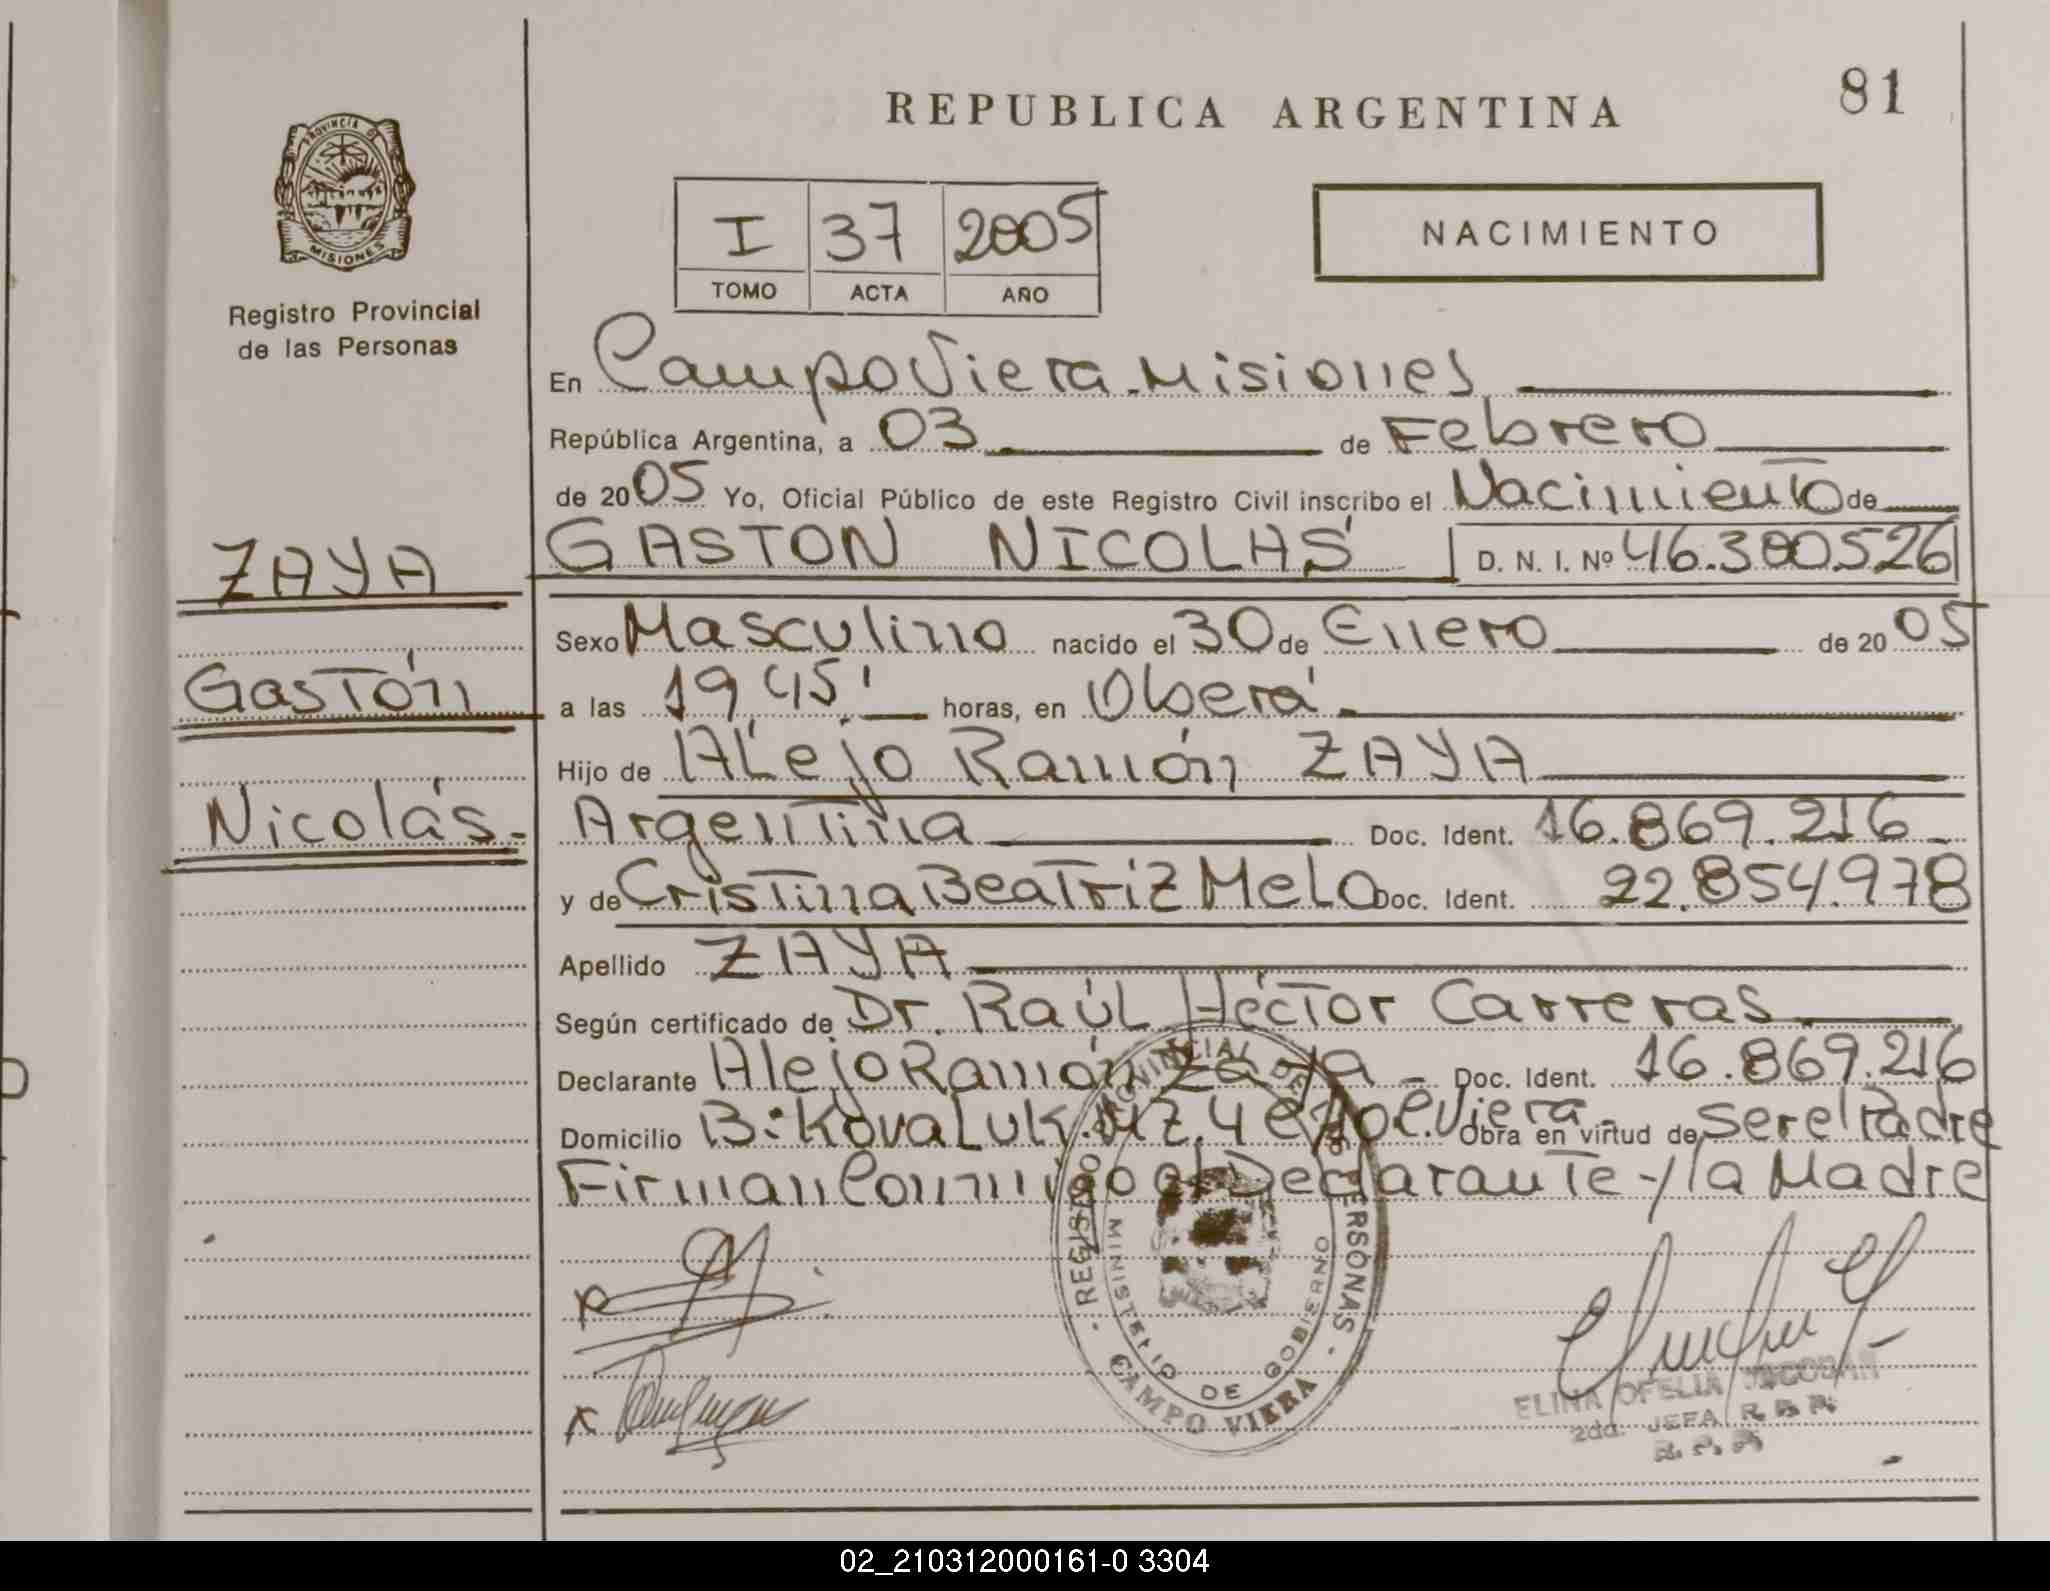 81
REPUBLICA ARGENTINA
PROVINCIA DE
MISIONES
Registro Provincial
de las Personas
I 37 2005
TOMO ACTA AÑO
NACIMIENTO
En Campo Viera. Misiones
República Argentina, a 03 de Febrero
de 2005 Yo, Oficial Público de este Registro Civil inscribo el Nacimiento de
GASTON NICOLÁS D. N. I. Nº 46.380.526
ZAYA
Gastón
Nicolás.-
Sexo Masculino nacido el 30 de Enero de 2005
a las 19 45' horas, en Oberá
Hijo de Alejo Ramón ZAYA
Argentina Doc. Ident. 16.869.216
y de Cristina Beatriz Melo Doc. Ident. 22.854.978
Apellido ZAYA
Según certificado de Dr. Raúl Héctor Carreras
Declarante Alejo Ramón Zaya Doc. Ident. 16.869.216
Domicilio B: Kovaluk. MZ. 4 C. Viera Obra en virtud de ser el Padre
Firman Conmigo el Declarante y la Madre
REGISTRO PROVINCIAL DE LAS PERSONAS
MINISTERIO DE GOBIERNO
CAMPO VIERA
ELINA OFELIA
2da. JEFA
02_210312000161-0 3304